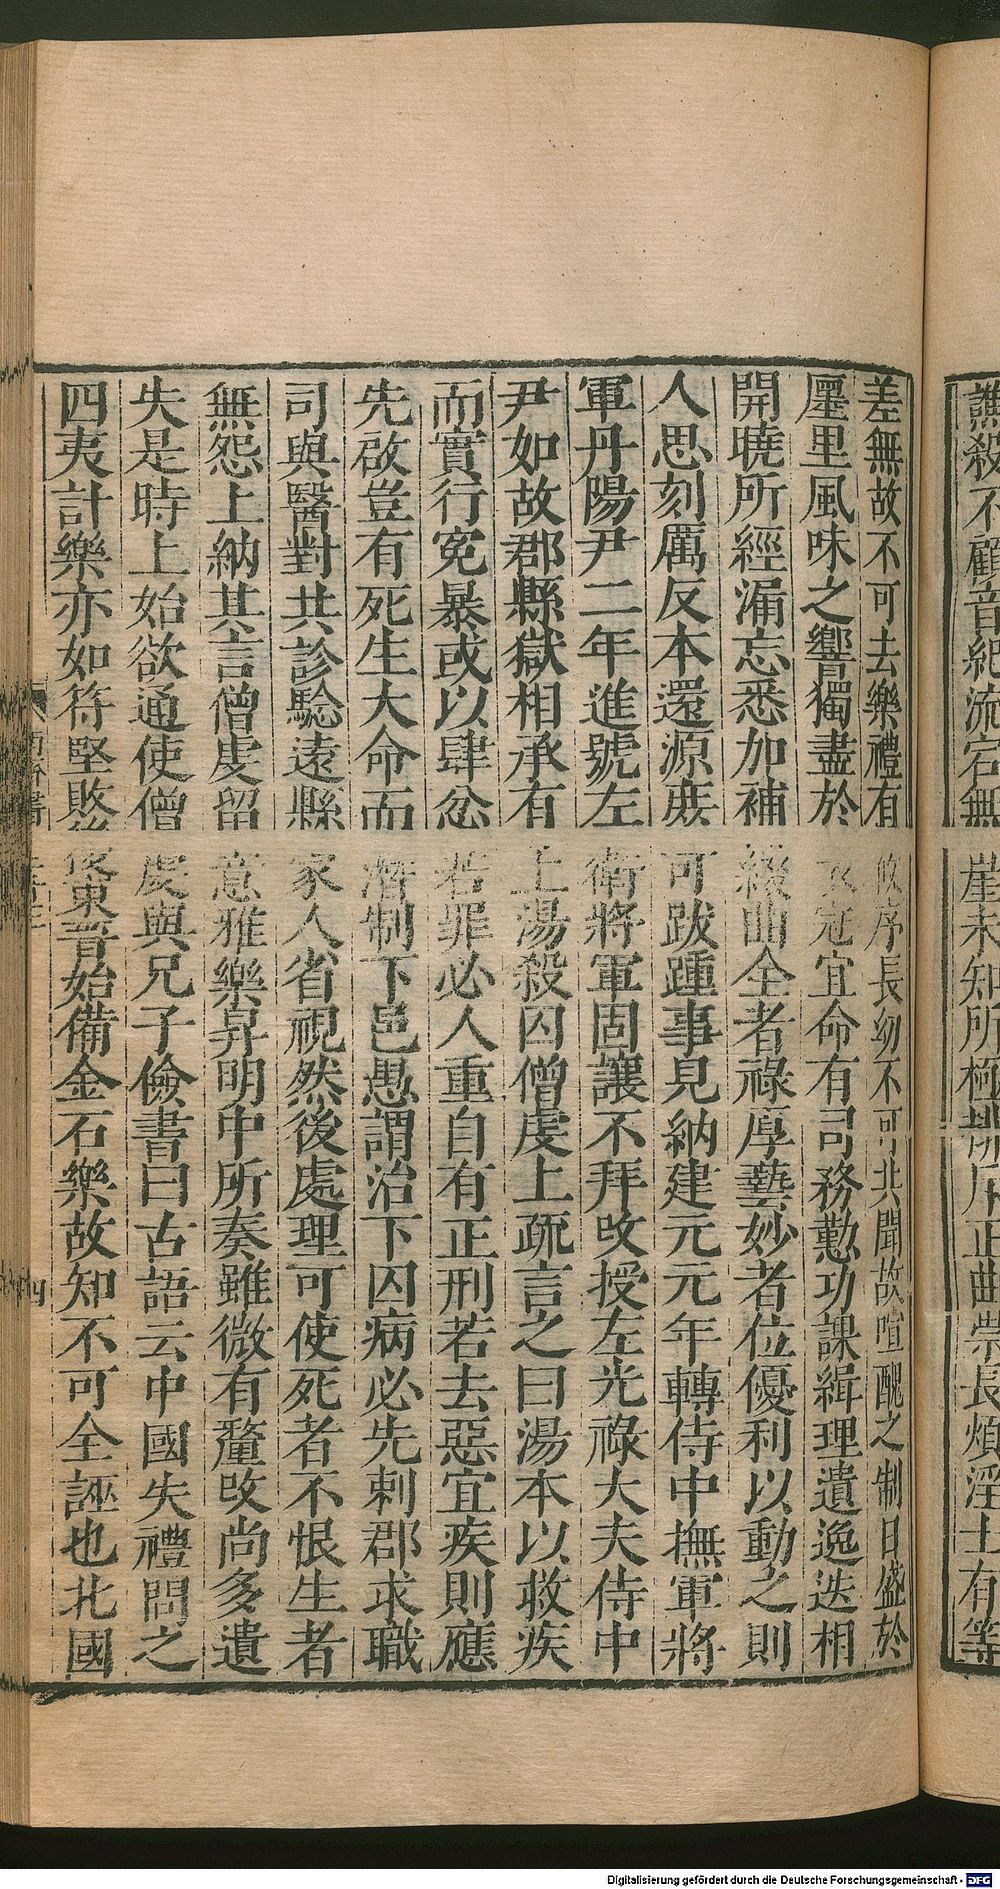 譙殺不顧音紀流宕無崖未知所極排斥正曲崇長煩淫士有等
差無故不可去樂禮有攸序長幼不可共聞故喧醜之制日盛於
廛里風味之響獨盡於衣冠宜命有司務懃功課緝理遺逸迭相
開曉所經漏忘悉加補綴曲全者祿厚藝妙者位優利以動之則
人思刻厲反本還源庶可跋踵事見納建元元年轉侍中撫軍將
軍丹陽尹二年進號左衛將軍固讓不拜改授左光祿大夫侍中
尹如故郡縣獄相承有上湯殺囚僧虔上疏言之曰湯本以救疾
而實行寃暴或以肆忿若罪必人重自有正刑若去惡宜疾則應
先啟豈有死生大命而潛制下邑愚謂治下囚病必先刺郡求職
司與醫對共診驗遠縣家人省視然後處理可使死者不恨生者
無怨上納其言僧虔留意雅樂昇明中所奏雖微有釐改尚多遺
失是時上始欲通使僧虔與兄子儉書曰古語云中國失禮問之
四夷計樂亦如符堅敗後東晉始備金石樂故知不可全誣也北國
四
Digitalisierung gefördert durch die Deutsche Forschungsgemeinschaft - DFG